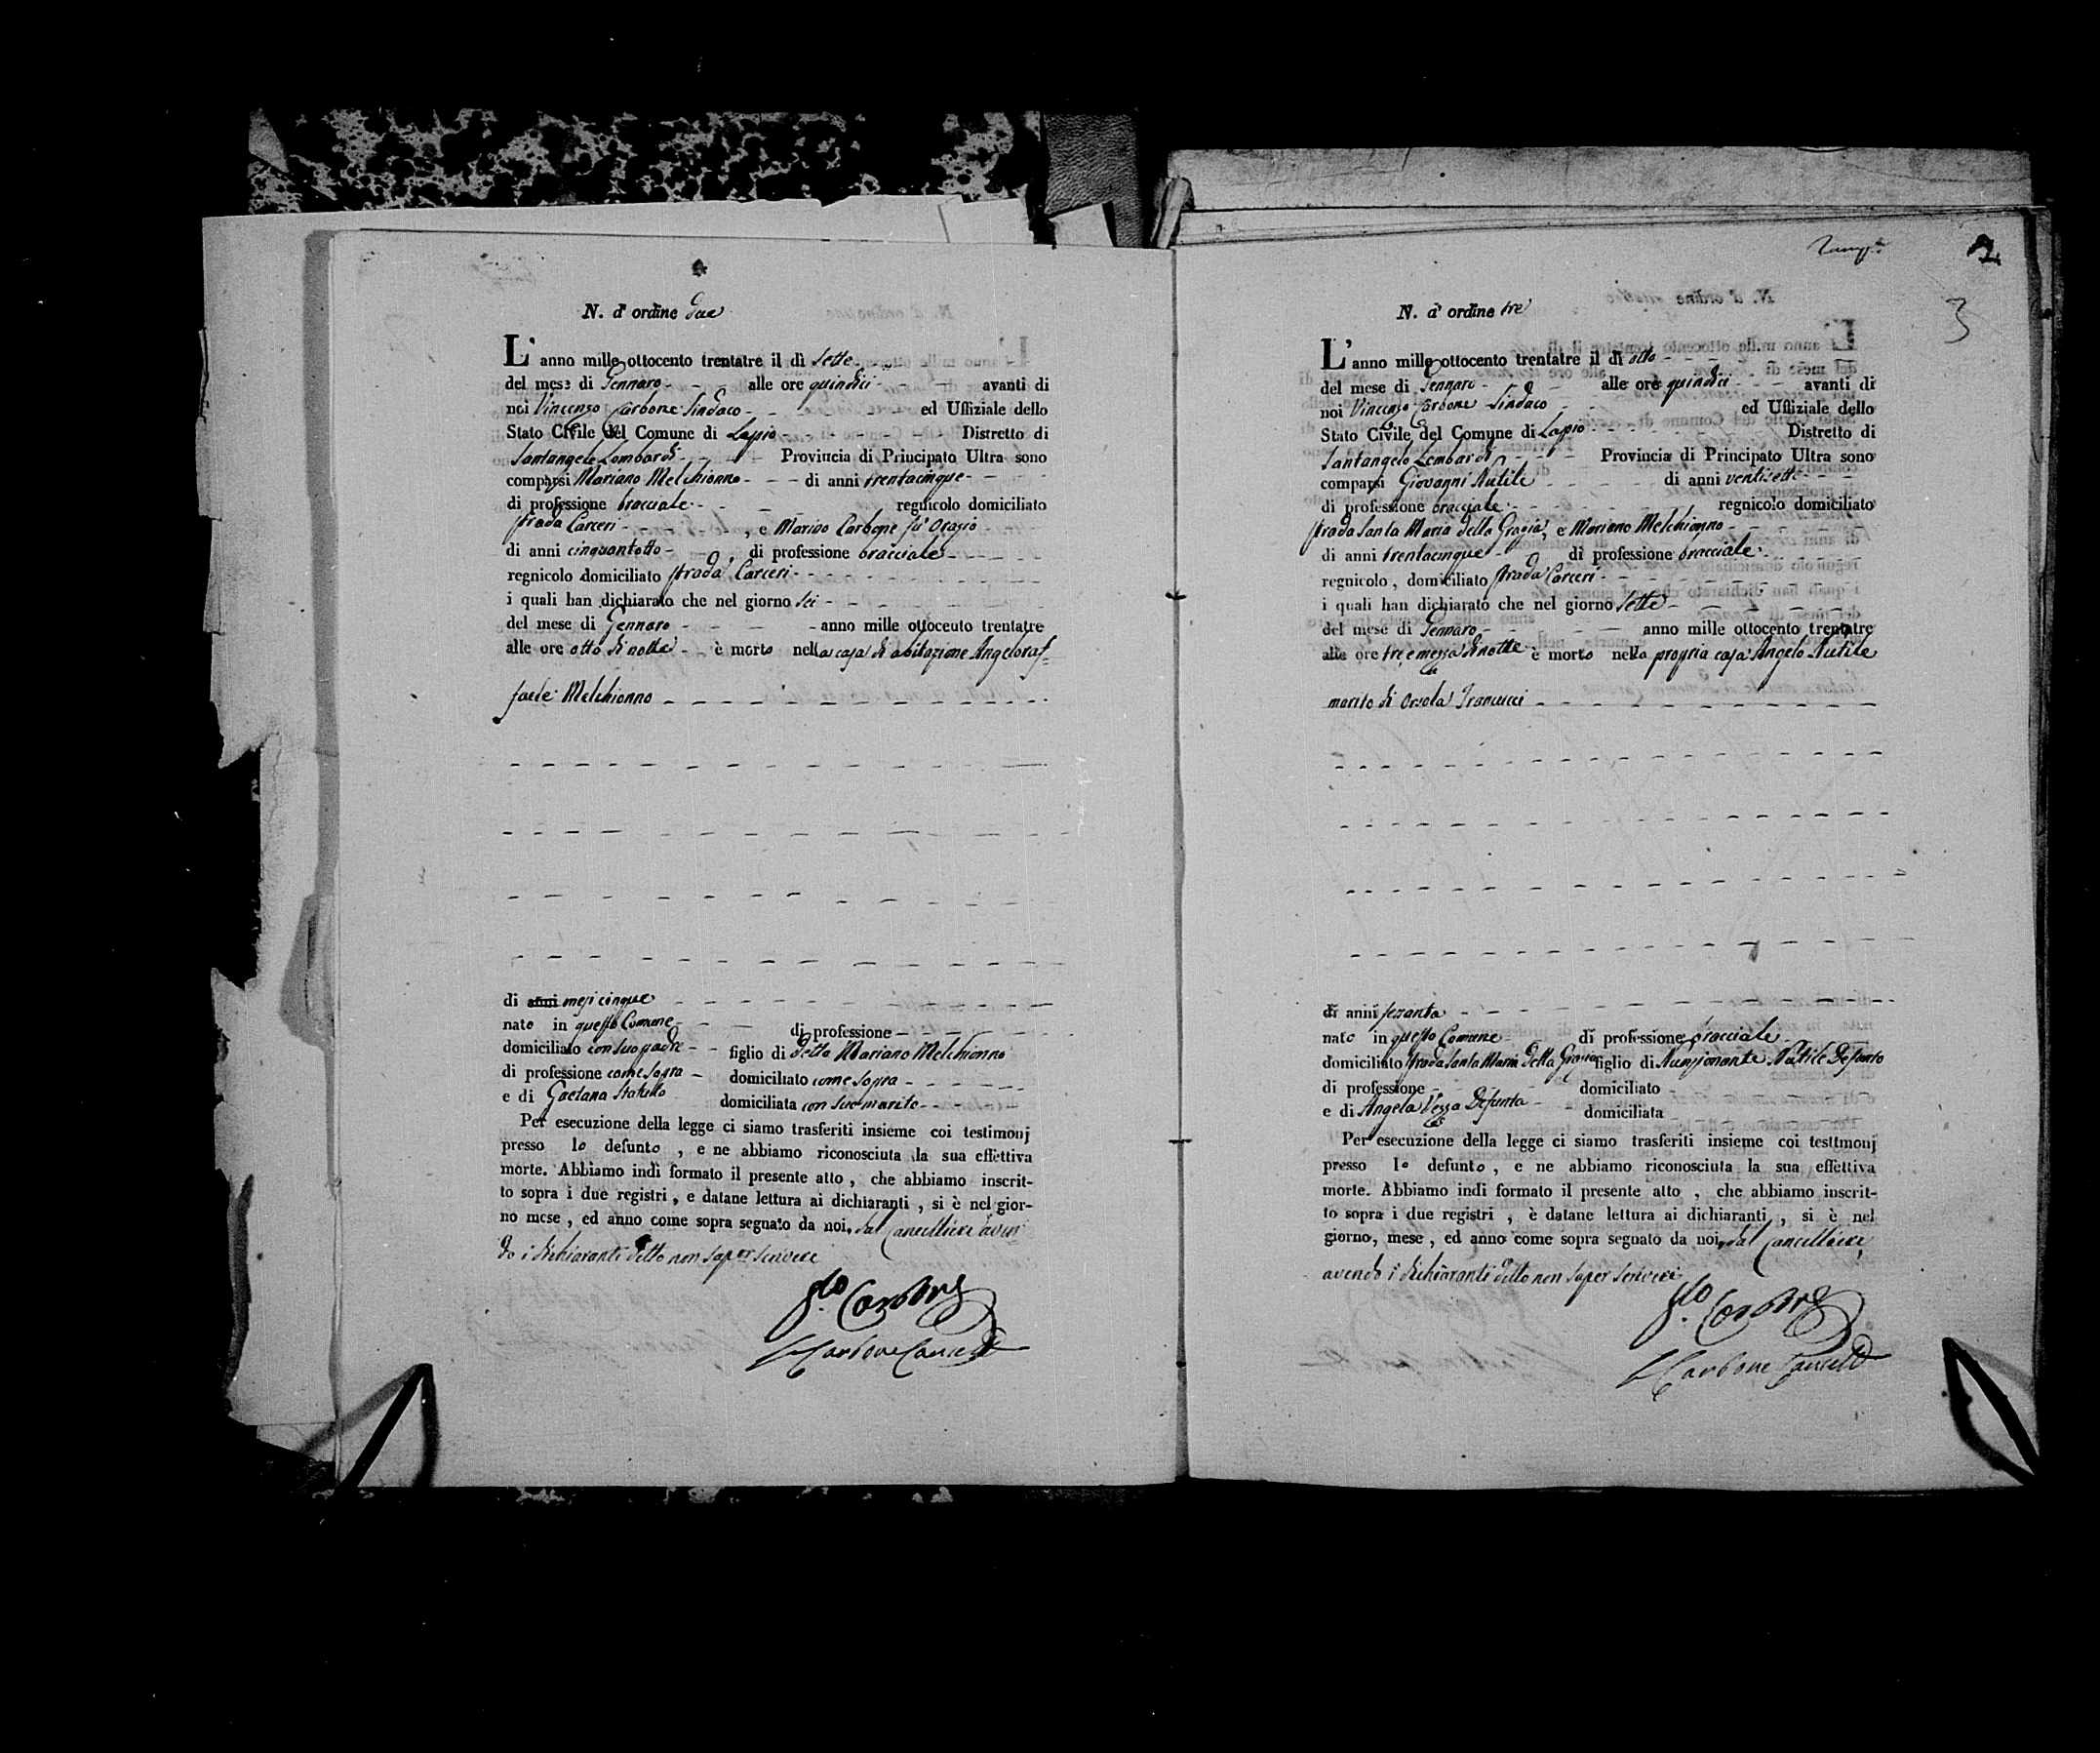 N. d' ordine due
L' anno mille ottocento trentatre il dì sette
del mese di Gennaro alle ore quindici avanti di
noi Vincenzo Carbone Sindaco ed Uffiziale dello
Stato Civile del Comune di Lapio Distretto di
Santangelo Lombardi Provincia di Principato Ultra sono
comparsi Mariano Melchionno di anni trentacinque
di professione bracciale regnicolo domiciliato
strada Carceri , e Marino Carbone fu Orazio
di anni cinquantotto , di professione bracciale
regnicolo domiciliato strada Carceri
i quali han dichiarato che nel giorno sei
del mese di Gennaro anno mille ottocento trentatre
alle ore otto di notte è morto nella casa di abitazione Angeloraf=
faele Melchionno
di anni mesi cinque
nato in questo Comune di professione
domiciliato con suo padre figlio di detto Mariano Melchionno
di professione come sopra domiciliato come sopra
e di Gaetana domiciliata con suo marito
Per esecuzione della legge ci siamo trasferiti insieme coi testimonj
presso lo defunto , e ne abbiamo riconosciuta la sua effettiva
morte. Abbiamo indi formato il presente atto , che abbiamo inscrit-
to sopra i due registri , e datane lettura ai dichiaranti , si è nel gior-
no mese , ed anno come sopra segnato da noi, dal Cancelliere aven
do i dichiaranti detto non saper scrivere
Carbone
Carbone Cancell
2
3
N. d' ordine tre
L' anno mille ottocento trentatre il dì otto
del mese di Gennaro alle ore quindici avanti di
noi Vincenzo Carbone Sindaco ed Uffiziale dello
Stato Civile del Comune di Lapio Distretto di
Santangelo Lombardi Provincia di Principato Ultra sono
comparsi Giovanni Nutile di anni ventisette
di professione bracciale regnicolo domiciliato
strada Santa Maria della Grazia, e Mariano Melchionno
di anni trentacinque di professione bracciale
regnicolo , domiciliato strada Carceri
i quali han dichiarato che nel giorno sette
del mese di Gennaro anno mille ottocento trentatre
alle ore tre e mezza di notte è morto nella propria casa Angelo Nutile
marito di Orsola Francucci
di anni sesanta
nato in questo Comune di professione bracciale
domiciliato strada Santa Maria della Grazia figlio di Nunzionante Nutile Defunto
di professione domiciliato
e di Angela Vozza Defunta domiciliata
Per esecuzione della legge ci siamo trasferiti insieme coi testimonj
presso lo defunto , e ne abbiamo riconosciuta la sua effettiva
morte. Abbiamo indi formato il presente atto , che abbiamo inscrit-
to sopra i due registri , è datane lettura ai dichiaranti , si è nel
giorno, mese , ed anno come sopra segnato da noi, dal Cancelliere,
avendo i dichiaranti detto non saper scrivere
Carbone
Carbone Cancell